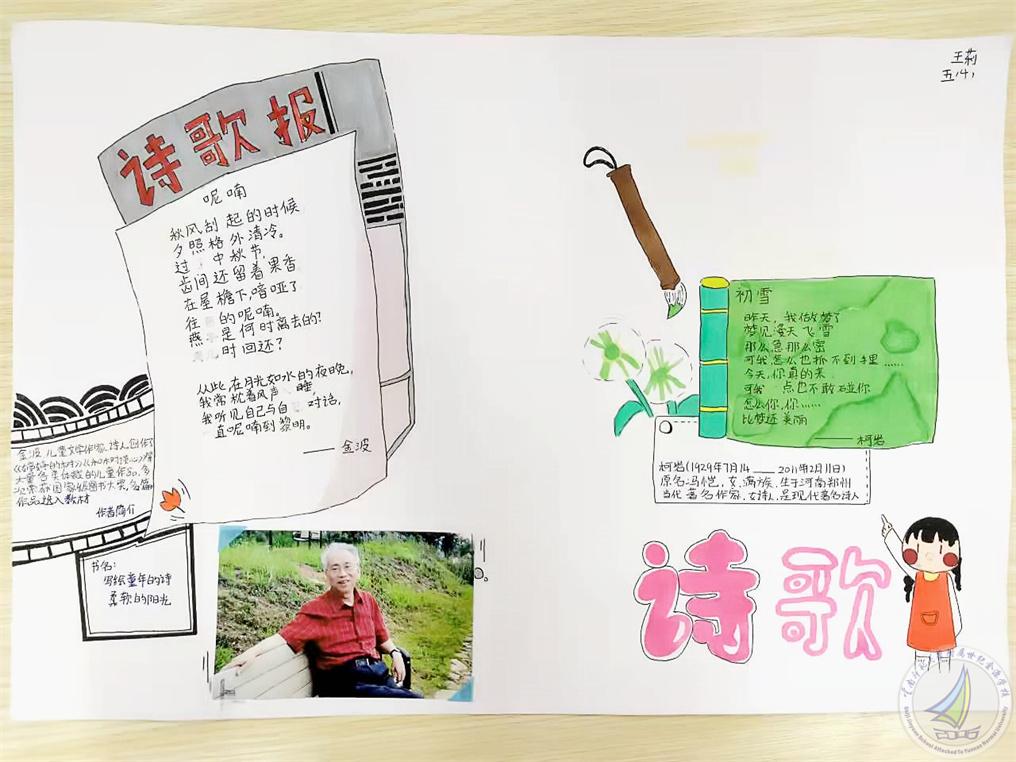 王莉
五(4)
诗歌报
呢喃
秋风刮起的时候
夕照格外清冷。
过 中秋节,
齿间还留着果香
在屋檐下,喑哑了
往 的呢喃。
燕 是何时离去的?
时回还?
从此,在月光如水的夜晚,
我常枕着风声 睡,
我听见自己与自 对话,
直呢喃到黎明。
—— 金波
金波,儿童文学作家、诗人,创作了
大量各类体裁的儿童作品,多
次荣获国家级图书大奖,多篇
作品进入教材
作者简介
书名:
写给童年的诗
柔软的阳光
初雪
昨天,我做梦了
梦见漫天飞雪
那么急那么密
可我怎么也抓不到手里……
今天,你真的来
可我 点也不敢碰你
怎么你,你……
比梦还美丽
—— 柯岩
柯岩(1929年7月14 —— 2011年12月11日)
原名冯恺,女,满族,生于河南郑州
当代著名作家,女诗人,是现代著名诗人
诗歌